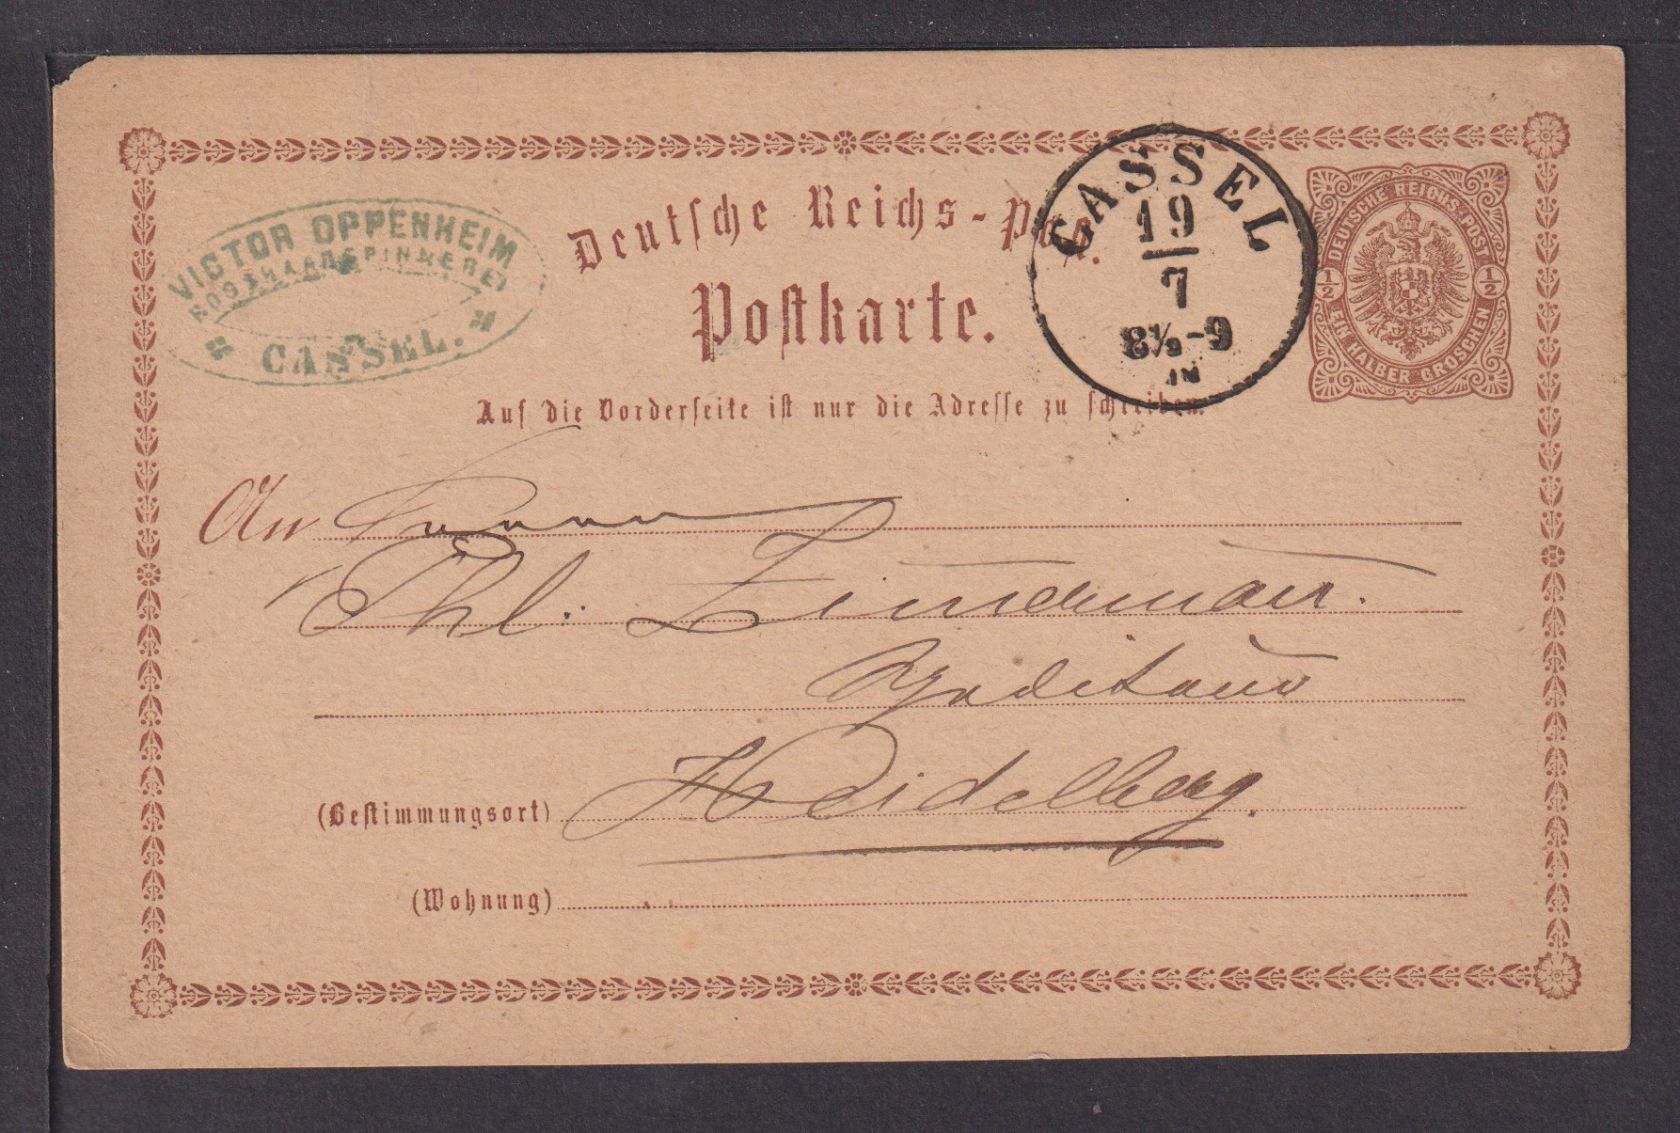 VICTOR OPPENHEIM
ROSSHAARSPINNEREI
CASSEL.
Deutsche Reichs-Post.
Postkarte.
CASSEL
19
7
8½-9
N
DEUTSCHE REICHS-POST
½ ½
EIN HALBER GROSCHEN
Auf die Vorderseite ist nur die Adresse zu schreiben.
An Herrn
Phl. Zimerman.
Heidelberg.
(Bestimmungsort)
(Wohnung)